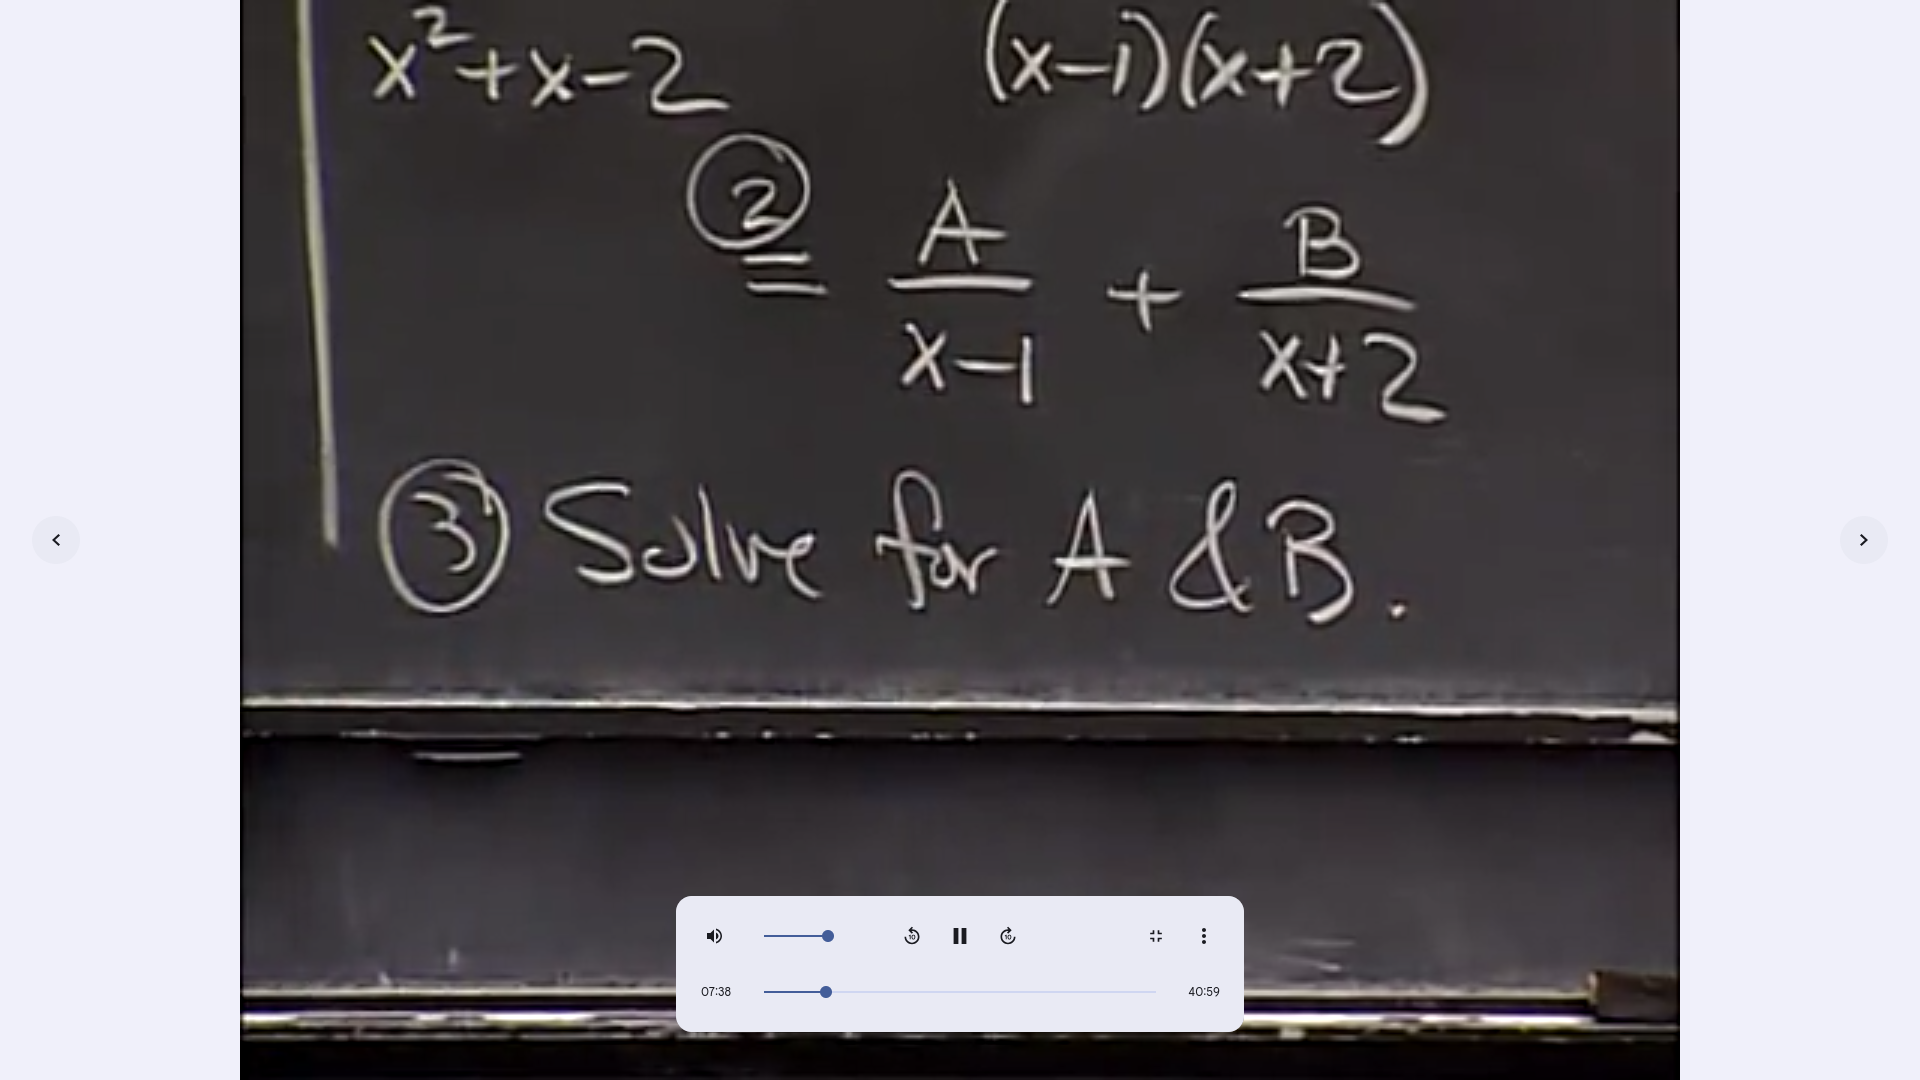 x²+x-2 (x-1)(x+2)
② = A/(x-1) + B/(x+2)
③ Solve for A & B.
10 10
07:38 40:59